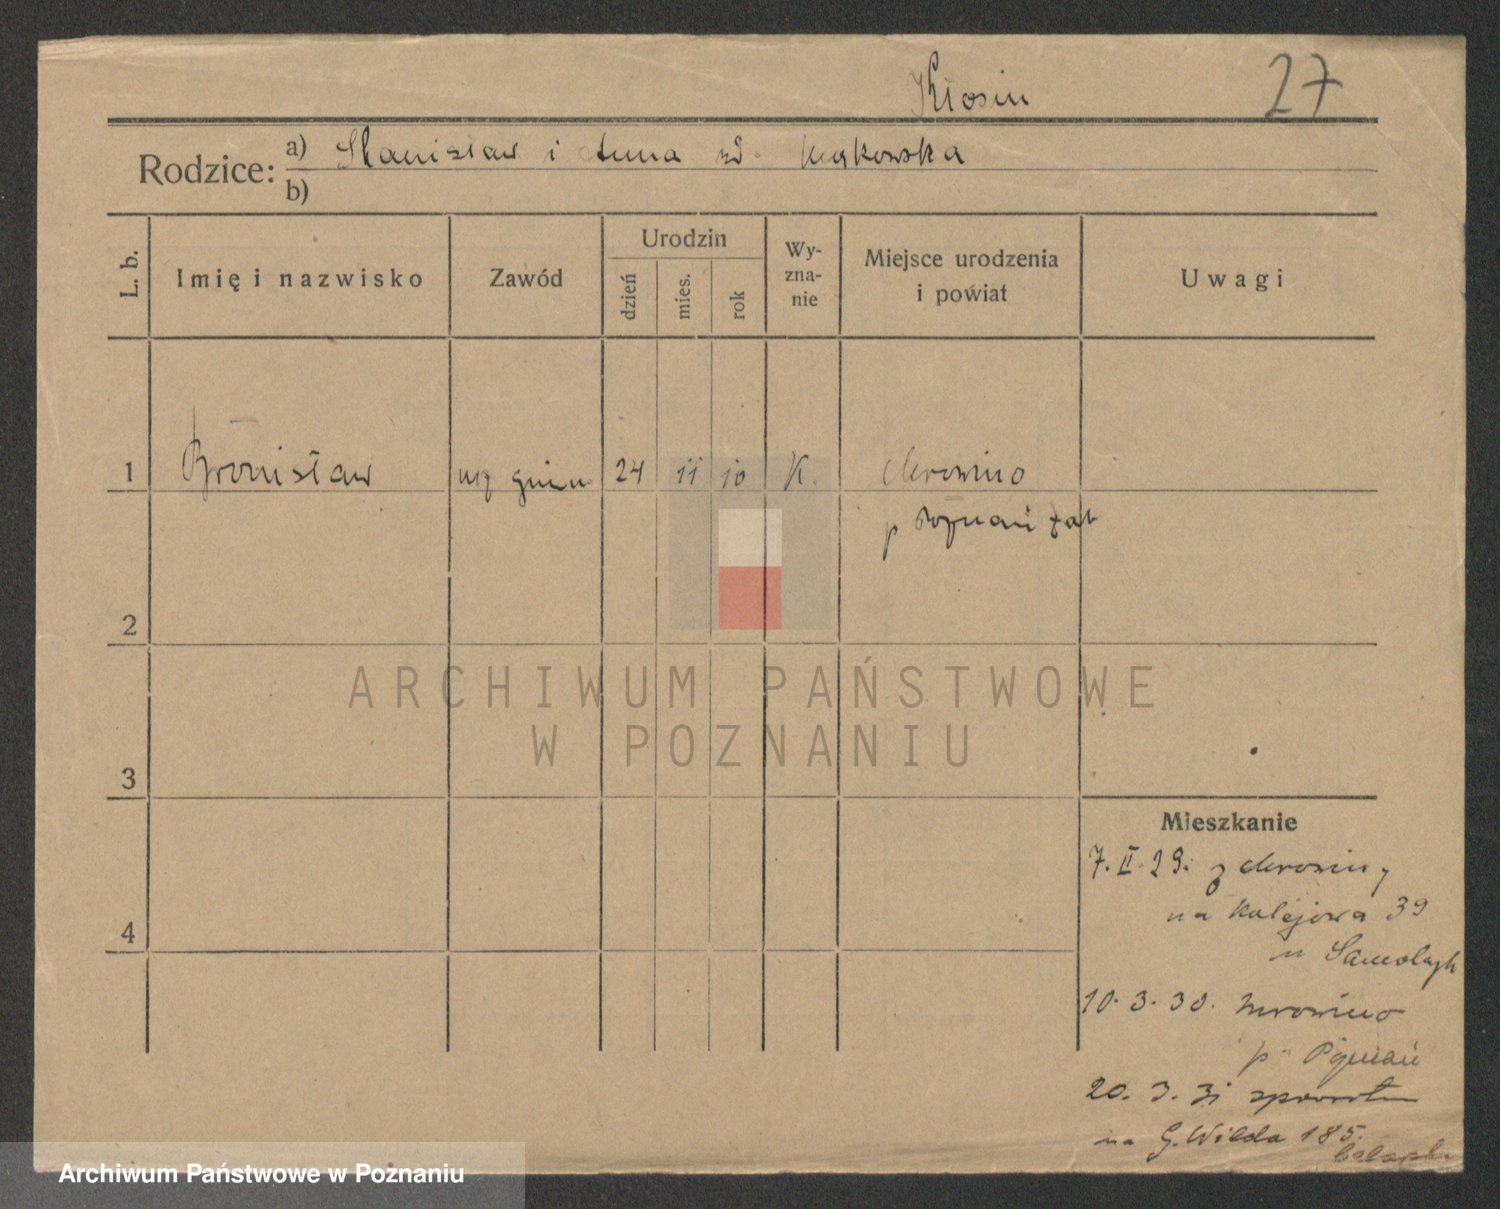 Kłosin 27
Rodzice: a) Stanisław i Anna z d. Mąkowska
b)
L. b. Imię i nazwisko Zawód Urodzin dzień mies. rok Wy-zna-nie Miejsce urodzenia i powiat Uwagi
1 Bronisław ucz gimn 24 11 10 K. Mrowino
p Poznań zach
2
ARCHIWUM PAŃSTWOWE
W POZNANIU
3
Mieszkanie
7. II. 29. z Mrowiny
na Kolejowa 39
4
u Samolczyk
10. 3. 30. Mrowino
p. Poznań
20. 3. 31 spowrotem
na G. Wilda 185.
Archiwum Państwowe w Poznaniu